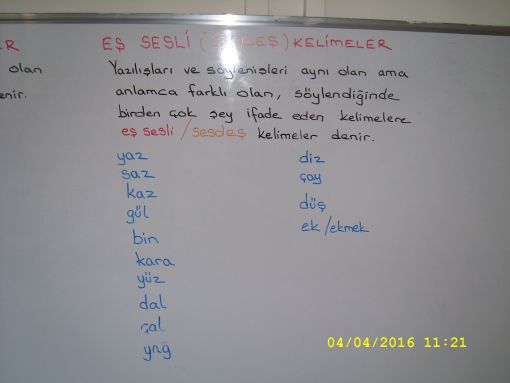 R
olan
enir.
EŞ SESLİ (SESDEŞ) KELİMELER
Yazılışları ve söylenişleri aynı olan ama
anlamca farklı olan, söylendiğinde
birden çok şey ifade eden kelimelere
eş sesli / sesdeş kelimeler denir.
yaz
saz
kaz
gül
bin
kara
yüz
dal
çal
diz
çay
düş
ek / ekmek
04/04/2016 11:21